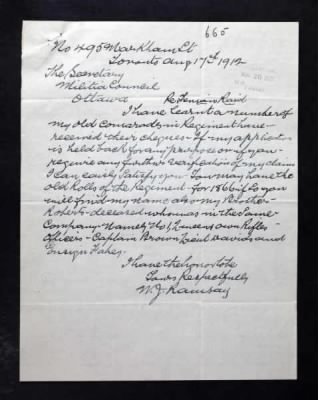 665
No 495 Markham St
Toronto Aug 17th 1912
The Secretary
Militia Council
Ottawa
Re Fenian Raid
I have learnt a number of
my old comrads in Regiment have
received their cheques - If my applictn
is held back for any purpose or if you
require any further verification of my claim
I can easily satisfy you - You may have the
old Rolls of the Regiment - for 1866 if so you
will find my name also my Brother
Robert - deceased who was in the same
Company - Namely No 1, Queens own Rifles -
officers - Captain Brown, Lieut Davis and
Ensign
I have the honor to be
Yours Respectfully
W. J. Ramsay